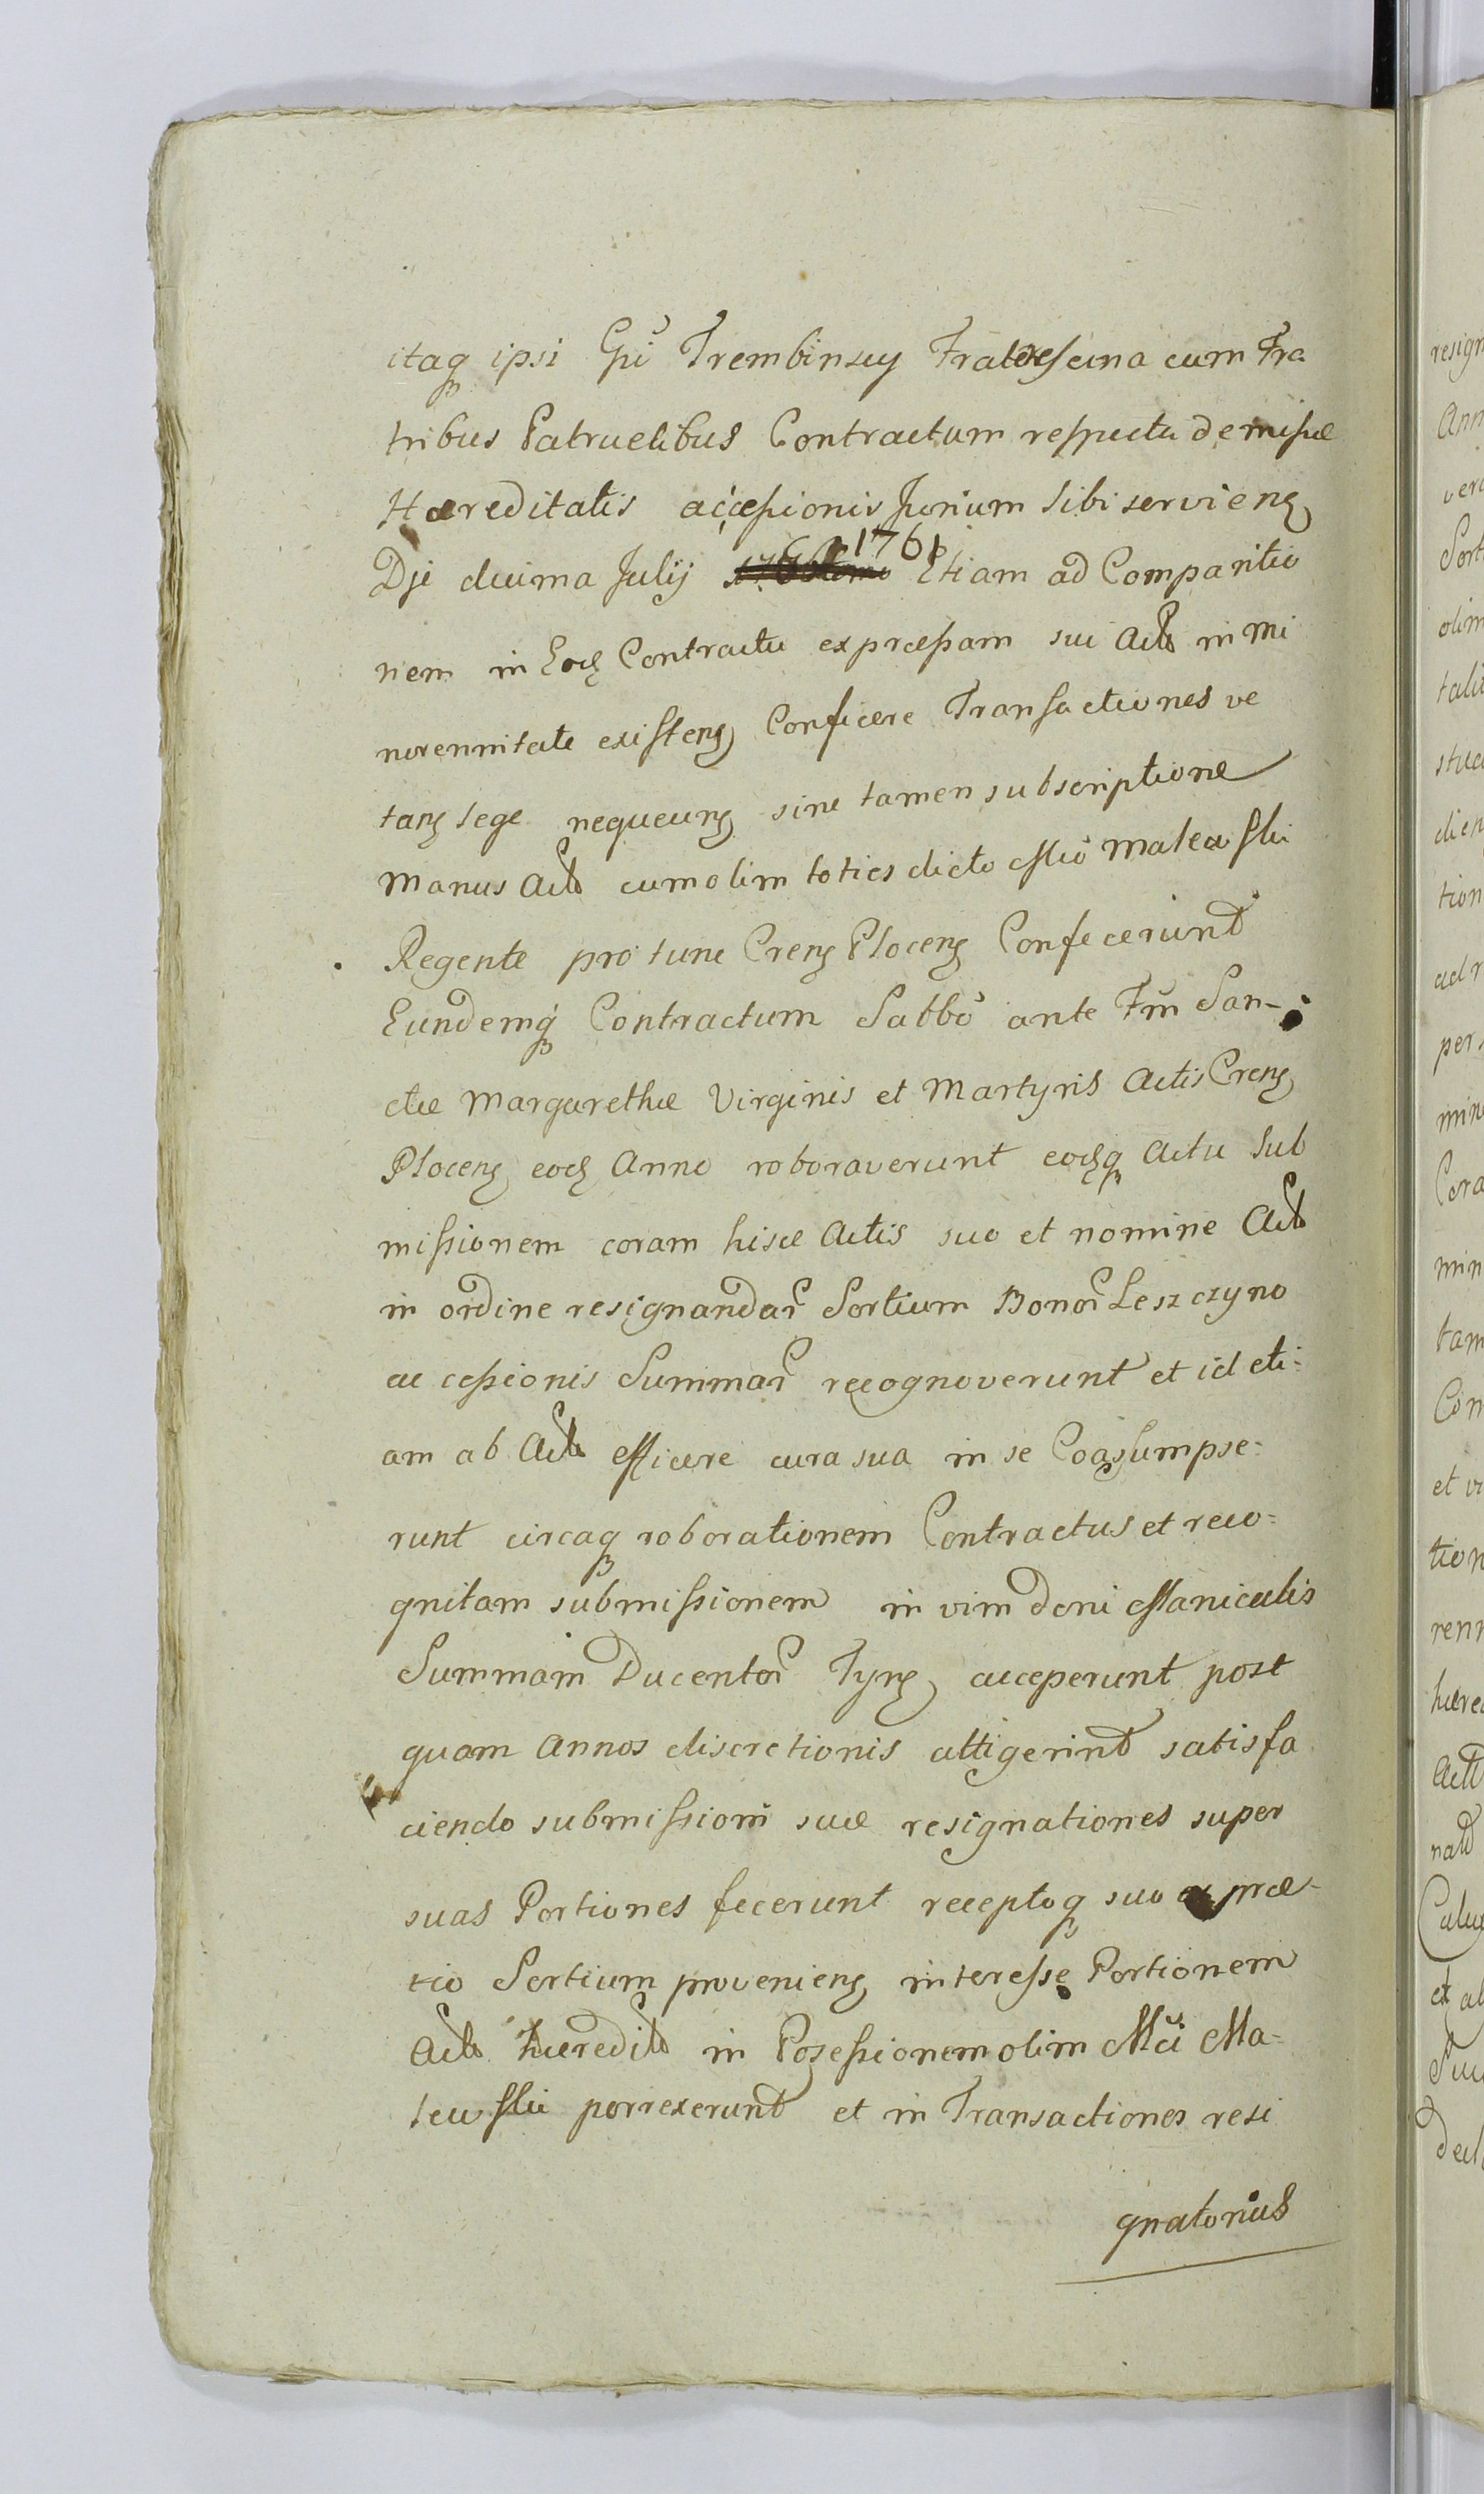 itaq ipsi Gñi Trembinscy Fratres una cum Fra
tribus Patruelibus Contractum respectu demissæ
Hæreditatis accessionis Jurium sibi servieng
Die decima Julij 1761 Etiam ad Comparitio
nem in Eod Contractu expressam sui Act in mi
norennitate existeng Conficere Transactiones ve
tang lege nequeung sine tamen subscriptione
Manus Act cum olim toties dicto Mateuski
Regente pro tunc Creng Ploceng Confecerunt
Eundemq Contractum Sabbõ ante Fm San-
ctæ Margarethæ Virginis et Martyris Actis Creng
Ploceng eod Anno roboraverunt eodq Actu sub
missionem coram hisce Actis suo et nomine Act
in ordine resignandar Sortium Bonor Leszczyno
ac cessionis Summar recognoverunt et id eti:
am ab Act efficere cura sua in se Coassumpse:
runt circaq roborationem Contractus et reco:
gnitam submissionem in vim doni Manicalis
Summam Ducentor Tynf acceperunt post
quam Annos discretionis attigerint satisfa
ciendo submissioni suæ resignationes super
suas Portiones fecerunt receptoq suo ex præ-
tio Sortium provenieng interesse Portionem
Act hæredit in Possessionem olim Mci Ma-
teuski porrexerunt et in Transactiones resi
gnatorias
resign
Ann
Sort
olim
dien
tion
ad r
per
min
Cora
min
tam
Con
et vi
tion
renn
hære
Act
et al